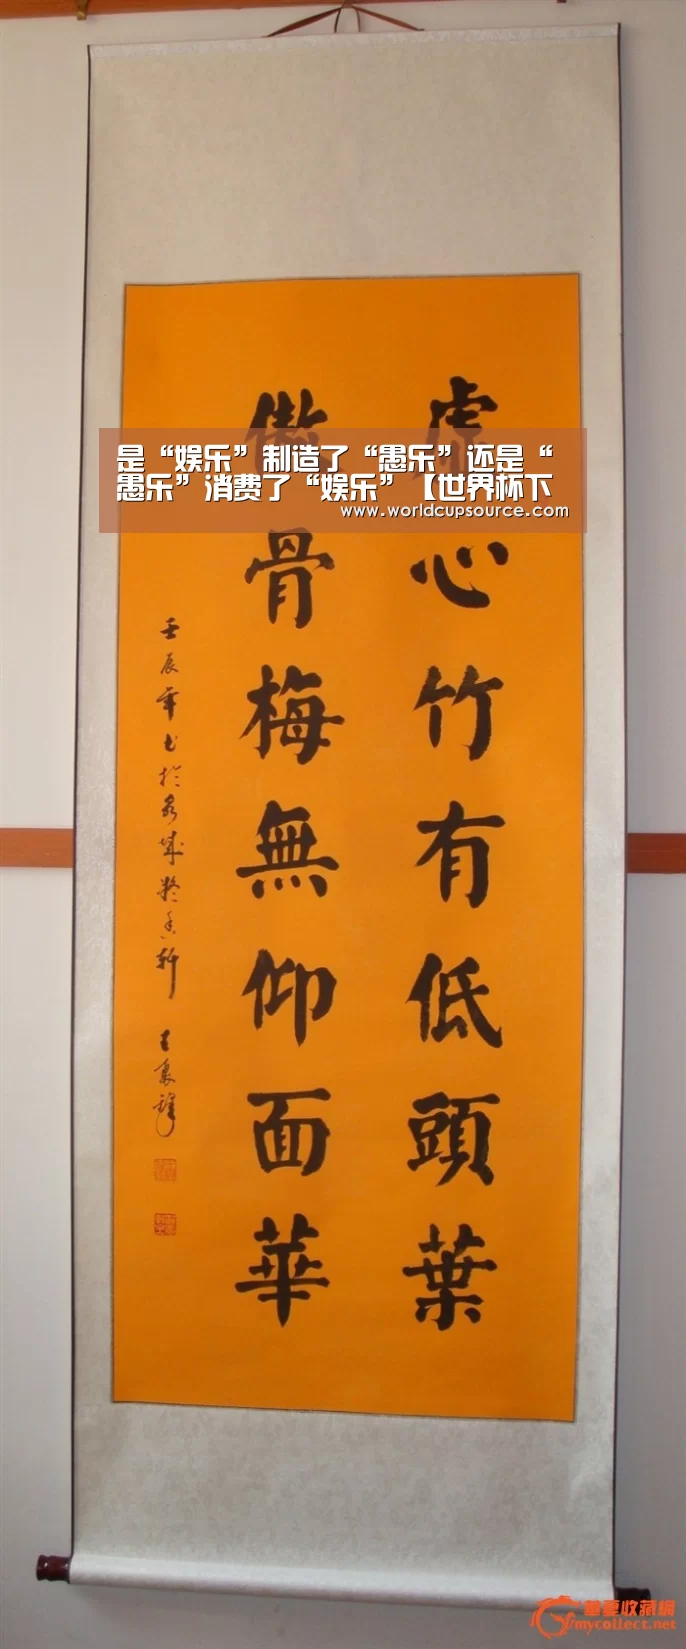 虚心竹有低頭葉
傲骨梅無仰面華
壬辰年書於泉城凝香軒
是“娱乐”制造了“愚乐”还是“
愚乐”消费了“娱乐”【世界杯下
www.worldcupsource.com
華夏收藏網
mycollect.net